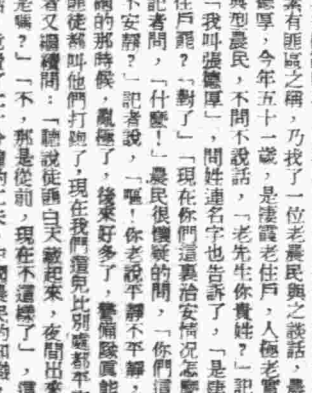 素有匪區之稱，乃找了一位老農民與之談話，農
德厚，今年五十一歲，是淒霞老住戶，人極老實
典型農民，不問不說話，「老先生你貴姓？」記
「我叫張德厚」，問姓連名字也告訴了，「是
住戶罷？「對了」「現在你們這裏治安情況怎麼
記者問，「什麼！」農民很懷疑的問，「你們這
不安靜？」記者說，「嘔！你老說平靜不平靜，
的那時候，亂極了，後來好多了，警備隊眞能
匪徒都叫他們打跑了，現在我們這兒比別處都平
者又繼續問：「聽說徒弟白天藏起來，夜間出來
是嗎？」「不，那是從前，現在不這樣了」，這